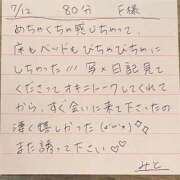 7/12 80分 F様
めちゃくちゃ感じちゃって、
床もベッドもびちゃびちゃに
しちゃった!!! 写×日記見て
くださってオキニトークしてくれて
から、すぐ会いに来て下さったの
凄く嬉しかった(о'ω'о)
また誘って下さい♡♡
みと